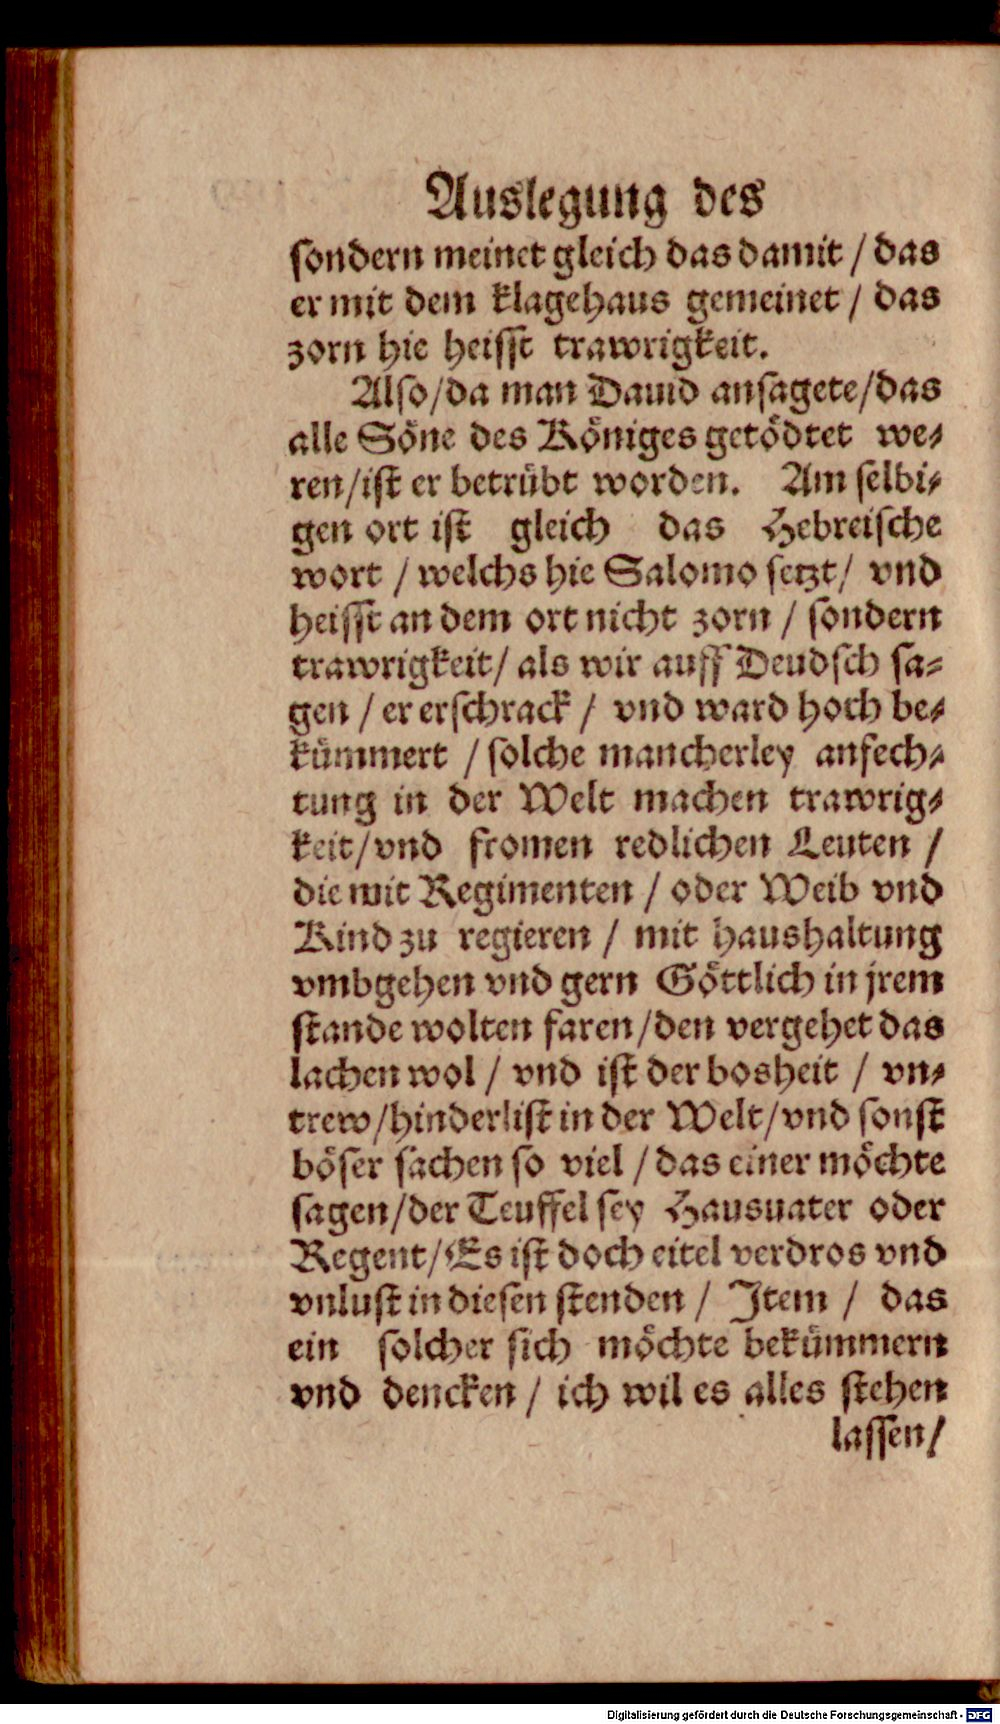 Auslegung des
sondern meinet gleich das damit / das
er mit dem klagehaus gemeinet / das
zorn hie heisst trawrigkeit.
Also/da man Dauid ansagete/das
alle Söne des Königes getödtet we-
ren/ist er betrübt worden. Am selbi-
gen ort ist gleich das Hebreische
wort / welchs hie Salomo setzt/ vnd
heisst an dem ort nicht zorn / sondern
trawrigkeit/ als wir auff Deudsch sa-
gen / er erschrack / vnd ward hoch be-
kümmert / solche mancherley anfech-
tung in der Welt machen trawrig-
keit/vnd fromen redlichen Leuten /
die mit Regimenten / oder Weib vnd
Kind zu regieren / mit haushaltung
vmbgehen vnd gern Göttlich in jrem
stande wolten faren/den vergehet das
lachen wol / vnd ist der bosheit / vn-
trew/hinderlist in der Welt/vnd sonst
böser sachen so viel / das einer möchte
sagen/der Teuffel sey Hausuater oder
Regent/Es ist doch eitel verdros vnd
vnlust in diesen stenden / Item / das
ein solcher sich möchte bekümmern
vnd dencken / ich wil es alles stehen
lassen/
Digitalisierung gefördert durch die Deutsche Forschungsgemeinschaft - DFG